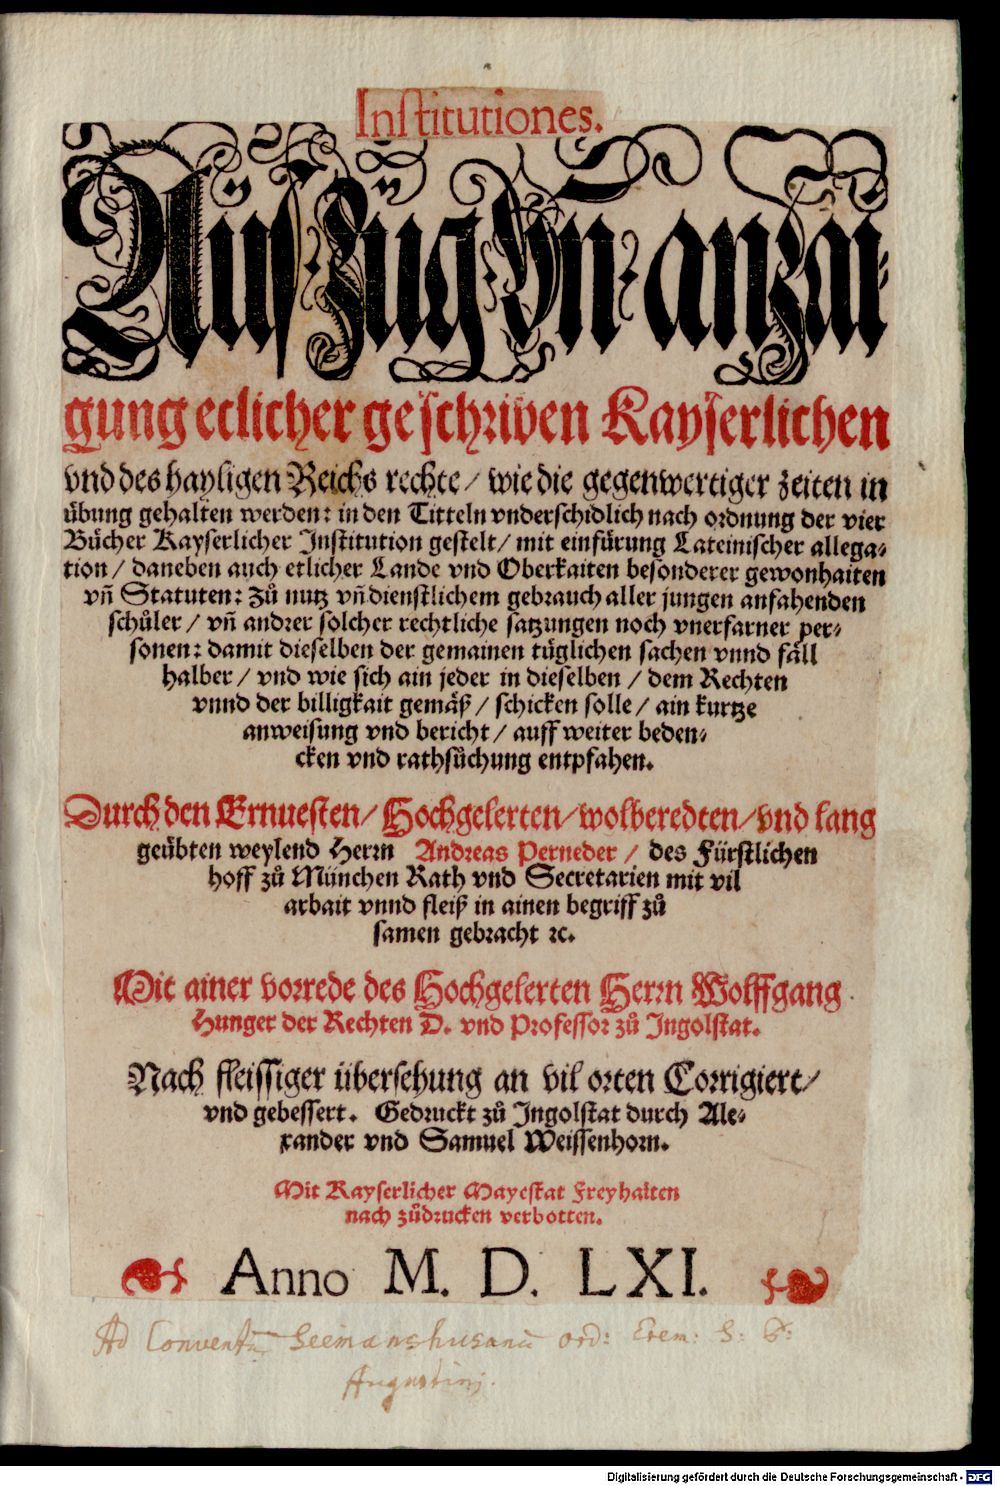 Institutiones.
Auß Zug Vñ anzai-
gung etlicher geschriben Kayserlichen
vnd des hayligen Reichs rechte / wie die gegenwertiger zeiten in
übung gehalten werden: in den Titteln vnderschidlich nach ordnung der vier
Bücher Kayserlicher Institution gestelt / mit einfürung Lateinischer allega-
tion / daneben auch etlicher Lande vnd Oberkaiten besonderer gewonhaiten
vñ Statuten: Zů nutz vñ dienstlichem gebrauch aller jungen anfahenden
schůler / vñ andrer solcher rechtliche satzungen noch vnerfarner per-
sonen: damit dieselben der gemainen tüglichen sachen vnnd fäll
halber / vnd wie sich ain jeder in dieselben / dem Rechten
vnnd der billigkait gemäß / schicken solle / ain kurtze
anweisung vnd bericht / auff weiter beden-
cken vnd rathsůchung entpfahen.
Durch den Ernuesten / Hochgelerten / wolberedten / vnd lang
geübten weylend Herrn Andreas Perneder / des Fürstlichen
hoff zů München Rath vnd Secretarien mit vil
arbait vnnd fleiß in ainen begriff zů
samen gebracht ꝛc.
Mit ainer vorrede des Hochgelerten Herrn Wolffgang
Hunger der Rechten D. vnd Professor zů Ingolstat.
Nach fleissiger übersehung an vil orten Corrigiert /
vnd gebessert. Gedruckt zů Ingolstat durch Ale-
xander vnd Samuel Weissenhorn.
Mit Kayserlicher Mayestat Freyhaiten
nach zůdrucken verbotten.
Anno M. D. LXI.
Ad Conventũ Seemanshusanũ ord: Erem: S: P:
Augustinj.
Digitalisierung gefördert durch die Deutsche Forschungsgemeinschaft - DFG